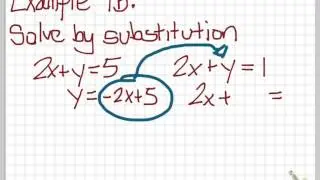 Example 1B:
Solve by substitution
2x+y=5 2x+y=1
y=-2x+5 2x+ =